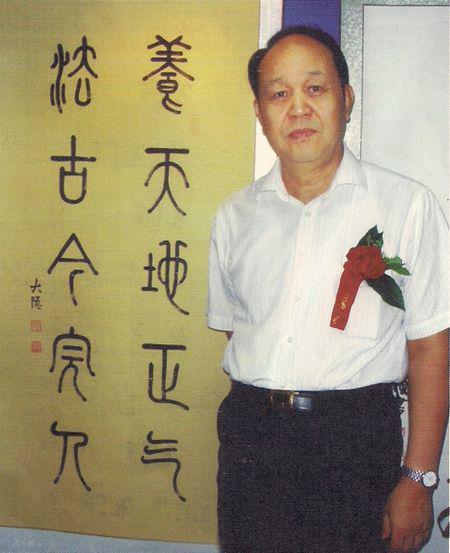 養天地正气
法古今完人
大隱